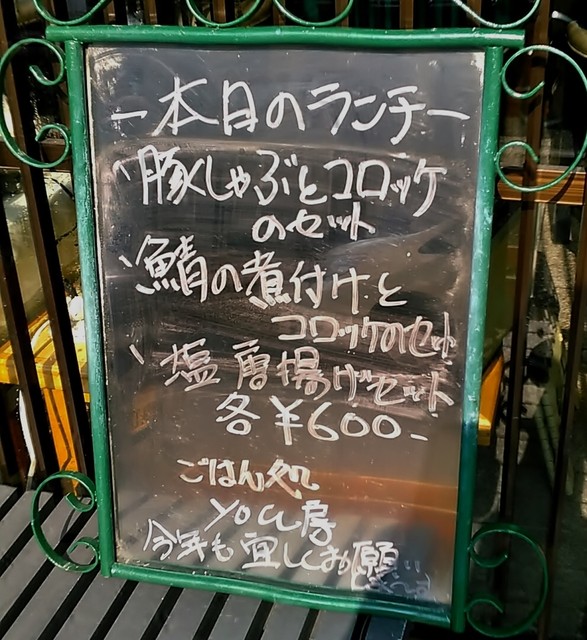 ー本日のランチー
、豚しゃぶとコロッケ
のセット
、鯖の煮付けと
コロッケのセット
、塩唐揚げセット
各￥600-
ごはん処
今年も宜しくお願